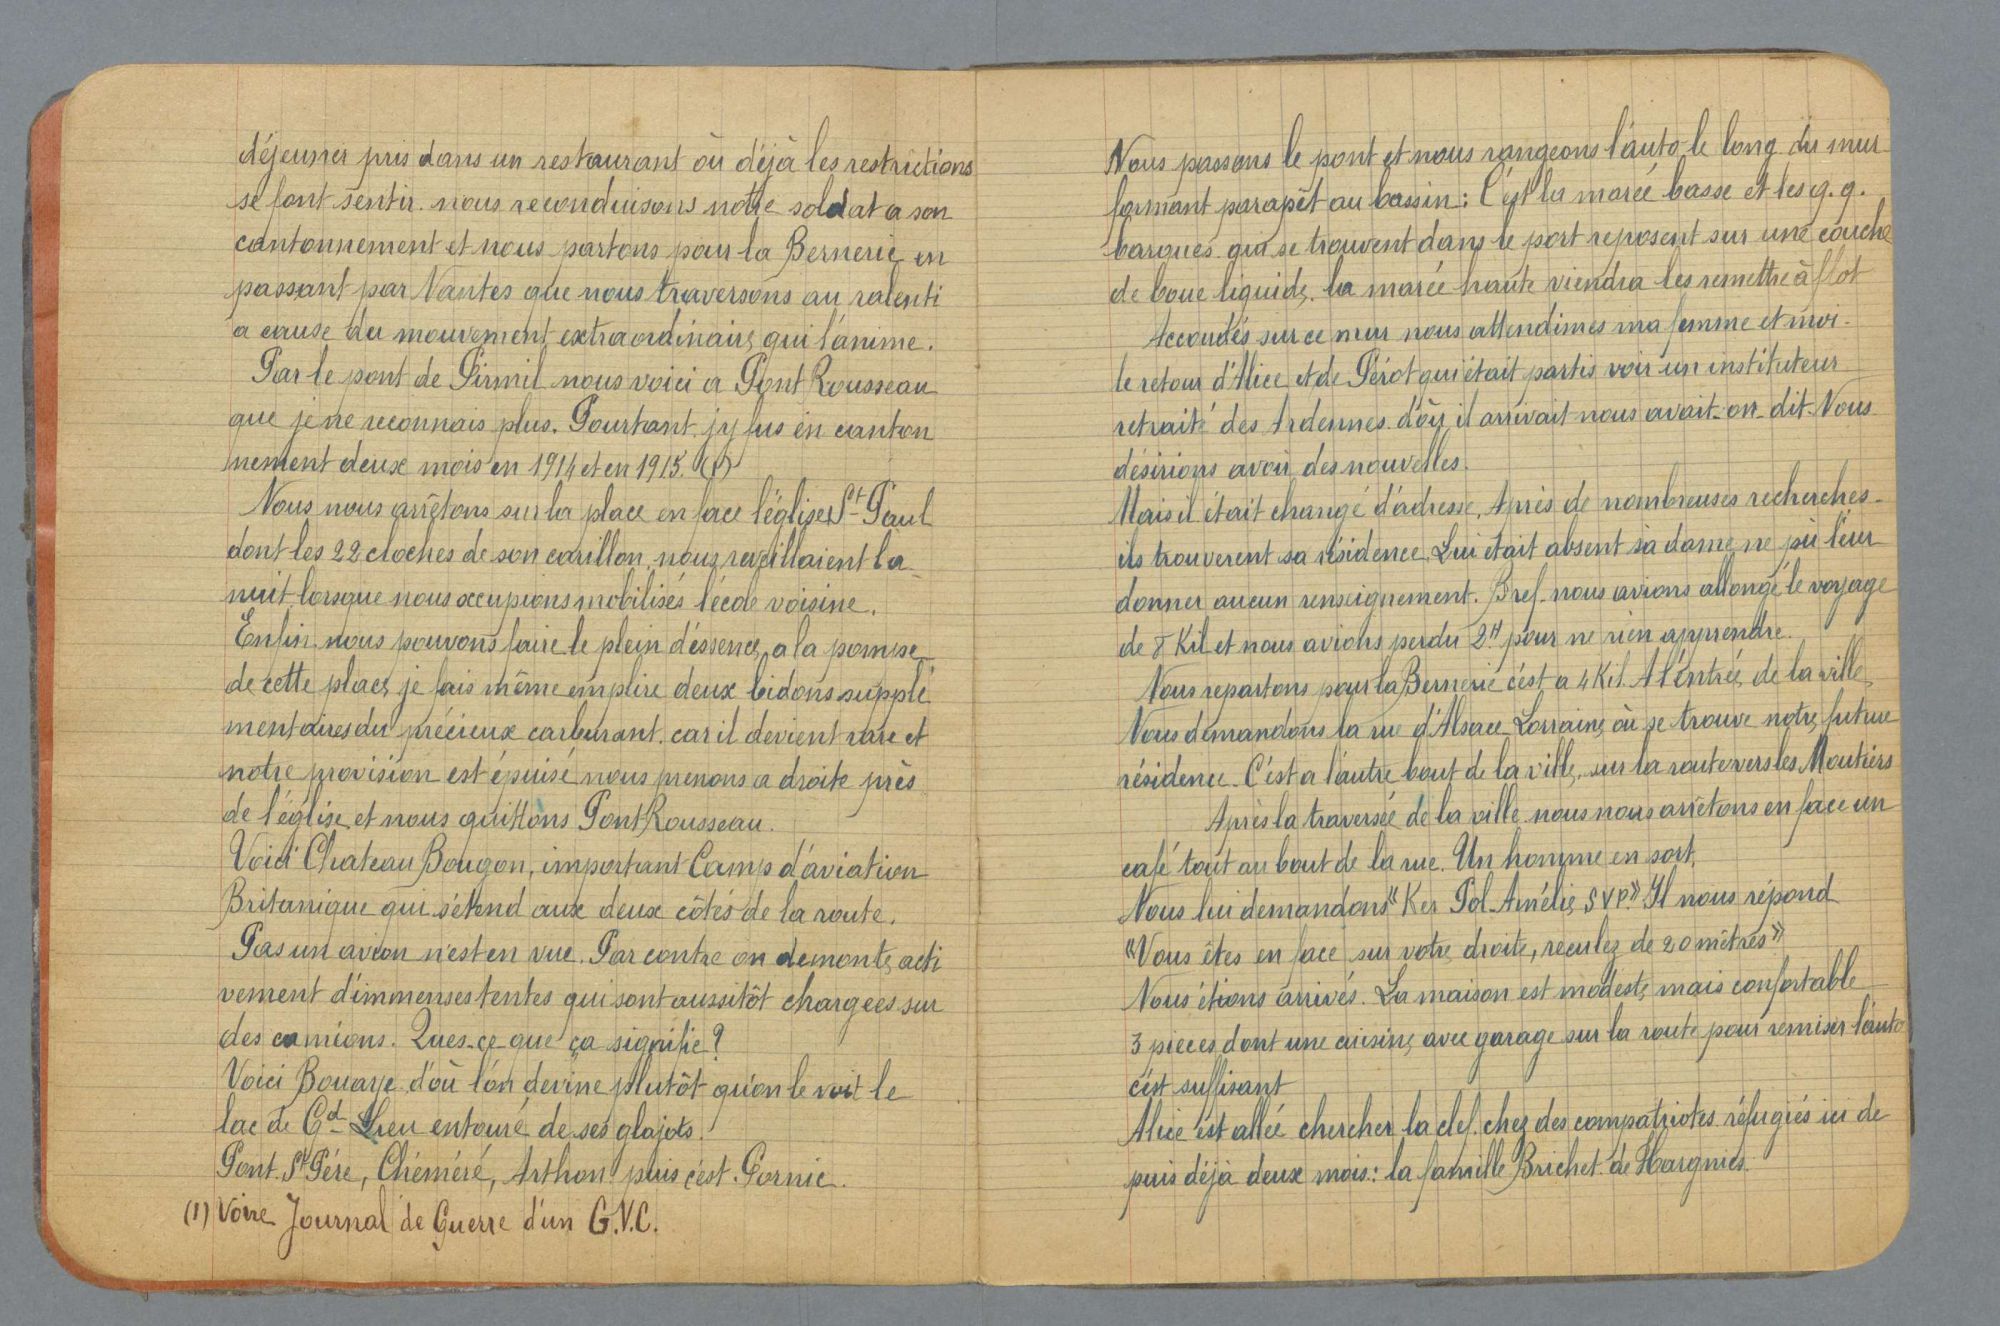 déjeuner pris dans un restaurant où déjà les restrictions
se font sentir. nous reconduisons notre soldat a son
cantonnement et nous partons pour la Bernerie en
passant par Nantes que nous traversons au ralenti
a cause du mouvement extraordinaire qui l'anime.
Par le pont de Pirmil nous voici a Pont Rousseau
que je ne reconnais plus. Pourtant j'y fus en canton
nement deux mois en 1914 et en 1915. (1)
Nous nous arrêtons sur la place en face l'église St Paul
dont les 22 cloches de son carillon nous reveillaient la
nuit lorsque nous occupions mobilisés l'école voisine.
Enfin nous pouvons faire le plein d'éssence a la pompe
de cette place, je fais même emplire deux bidons supplé
mentaires du précieux carburant. car il devient rare et
notre provision est épuisé nous prenons a droite près
de l'église et nous quittons Pont Rousseau.
Voici Chateau Bougon, important Camp d'aviation
Britanique qui s'étend aux deux côtés de la route.
Pas un avion n'est en vue. Par contre on demonte acti
vement d'immenses tentes qui sont aussitôt chargees sur
des camions. Ques-ce que ça signifie?
Voici Bouaye d'où l'on devine plutôt qu'on le voit le
lac de Gd Lieu entouré de ses glajots.
Pont St Pére, Chéméré, Arthon puis c'est Pornic.
(1) Voire Journal de Guerre d'un G.V.C.
Nous passons le pont et nous rangeons l'auto le long du mur
formant parapêt au bassin: C'est la marée basse et les q.q.
barques qui se trouvent dans le port reposent sur une couche
de boue liquide, la marée haute viendra les remettre à flot
Accoudés sur ce mur nous attendimes ma femme et moi
le retour d'Alice et de Pérot qui était partis voir un instituteur
retraité des Ardennes d'où il arrivait nous avait-on dit. Nous
désirions avoir des nouvelles.
Mais il était changé d'adresse. Après de nombreuses recherches
ils trouverent sa résidence, Lui était absent sa dame ne pù leur
donner aucun renseignement. Bref nous avions allongé le voyage
de 8 Kil et nous avions perdu 2H pour ne rien apprendre.
Nous repartons pour la Bernerie c'est a 4 Kil. A l'entrée de la ville
Nous demandons la rue d'Alsace Lorraine où se trouve notre future
résidence. C'est a l'autre bout de la ville, sur la route vers les Moutiers
Après la traversée de la ville nous nous arrêtons en face un
café tout au bout de la rue. Un homme en sort,
Nous lui demandons "Ker Pol Amélie SVP." Il nous répond
"Vous êtes en face sur votre droite, reculez de 20 mètres"
Nous étions arrivés. La maison est modeste mais confortable
3 pieces dont une cuisine avec garage sur la route pour remiser l'auto
c'est suffisant
Alice est allée chercher la clef chez des compatriotes réfugiés ici de
puis déjà deux mois: la famille Brichet de Hargnies.